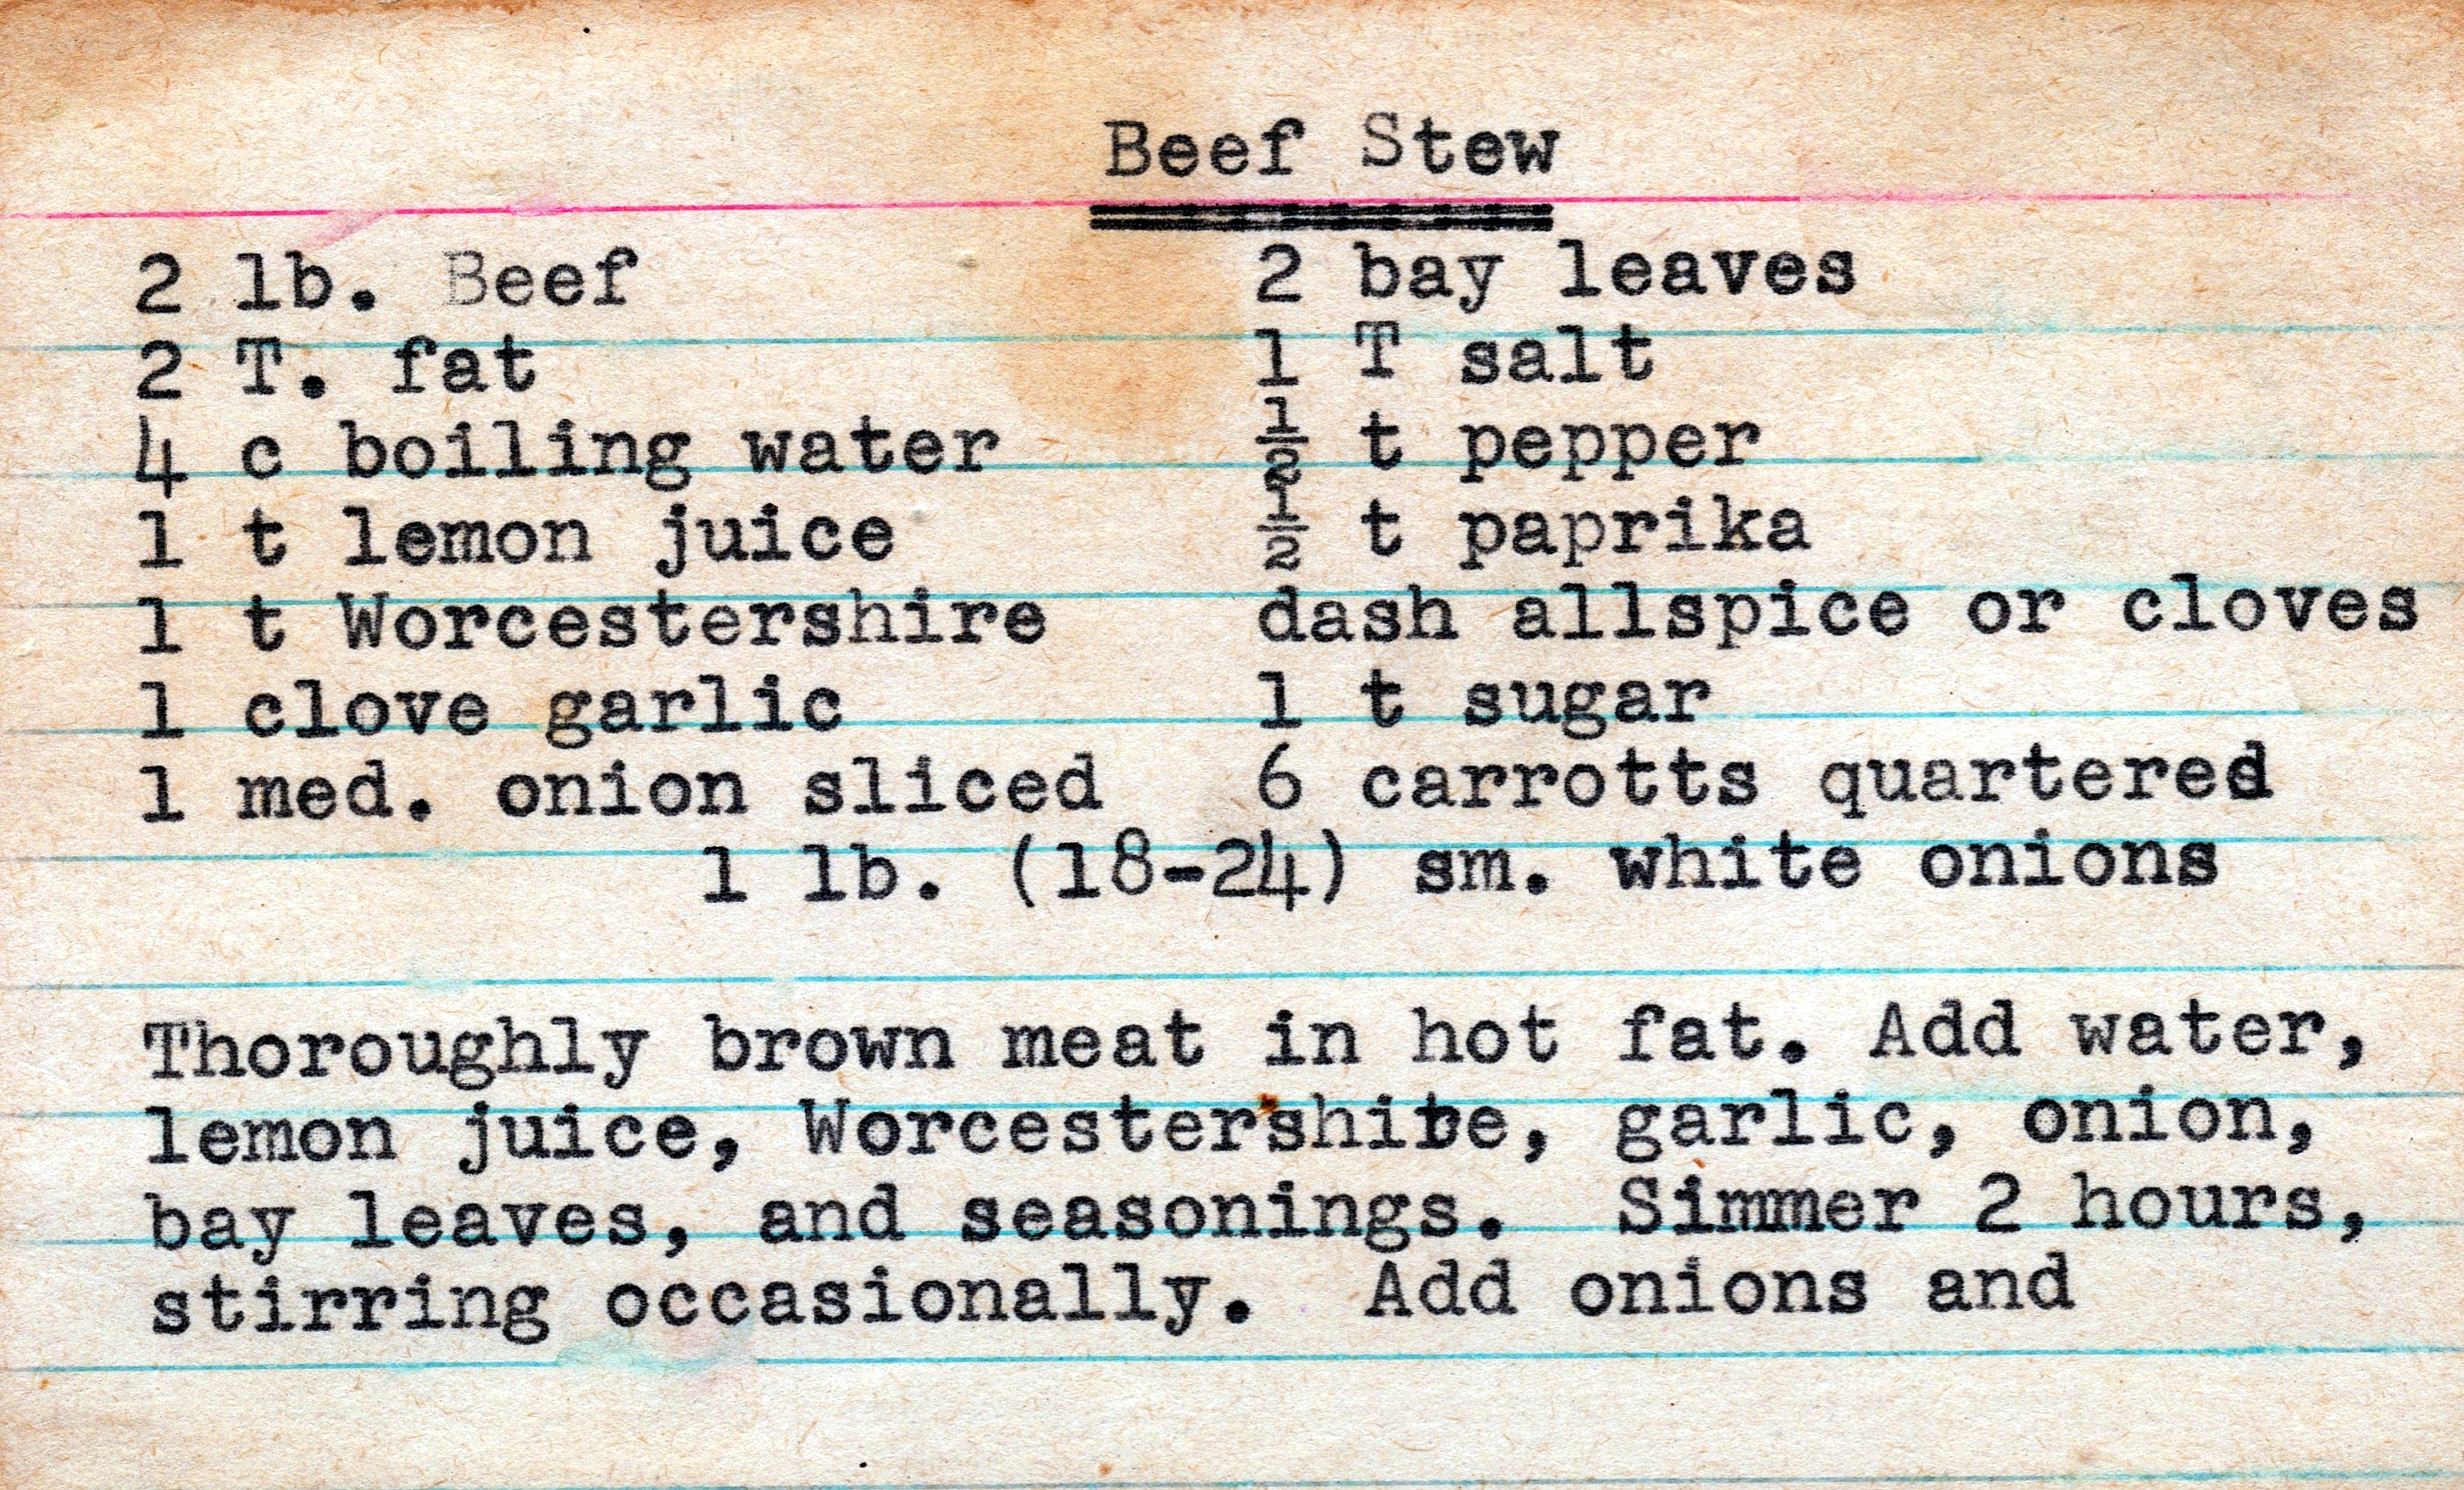 Beef Stew
2 lb. Beef 2 bay leaves
2 T. fat 1 T salt
4 c boiling water ½ t pepper
1 t lemon juice ½ t paprika
1 t Worcestershire dash allspice or cloves
1 clove garlic 1 t sugar
1 med. onion sliced 6 carrotts quartered
1 lb. (18-24) sm. white onions
Thoroughly brown meat in hot fat. Add water,
lemon juice, Worcestershire, garlic, onion,
bay leaves, and seasonings. Simmer 2 hours,
stirring occasionally. Add onions and